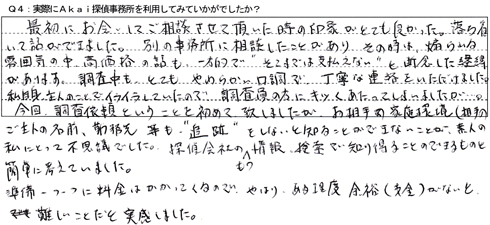 Q4:実際にAkai探偵事務所を利用してみていかがでしたか?
最初にお会いしてご相談させて頂いた時の印象がとても良かった。落ち着
いて話ができました。別の事務所に相談したことがあり、その時は、煽られる
雰囲気の中、高価格の話も一方的で“そこまでは支払えない”と断念した経緯
があります。調査中も、とてもやわらかい口調で、丁寧な連絡をいただけました。
私自身主人のことでイライラしていたので、調査員の方にキツくあたってしまいましたが…。
今回、調査依頼ということを初めて致しましたが、お相手の家庭環境(相手の
ご主人の名前、勤務先 等も“追跡”をしないと知ることができないことが、素人の
私にとって不思議でした。探偵会社の情報、検索で知り得ることのできるものと
もつ
簡単に考えていました。
準備一つ一つに料金はかかってくるので、やはり、ある程度 余裕(資金)がないと
難しいことだと実感しました。